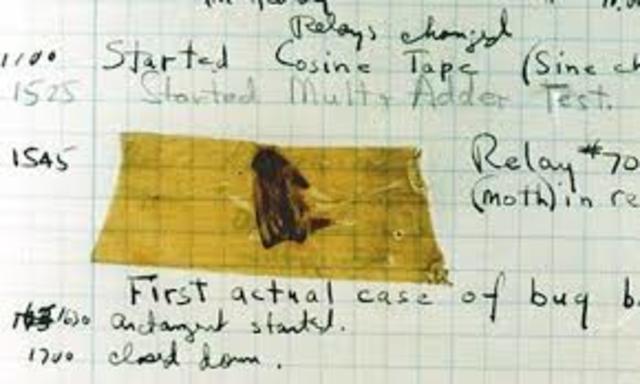 Relays changed
1100 Started Cosine Tape (Sine ch
1525 Started Mult+ Adder Test.
1545 Relay #70
(moth) in re
First actual case of bug b
1630 arctangent started.
1700 closed down.